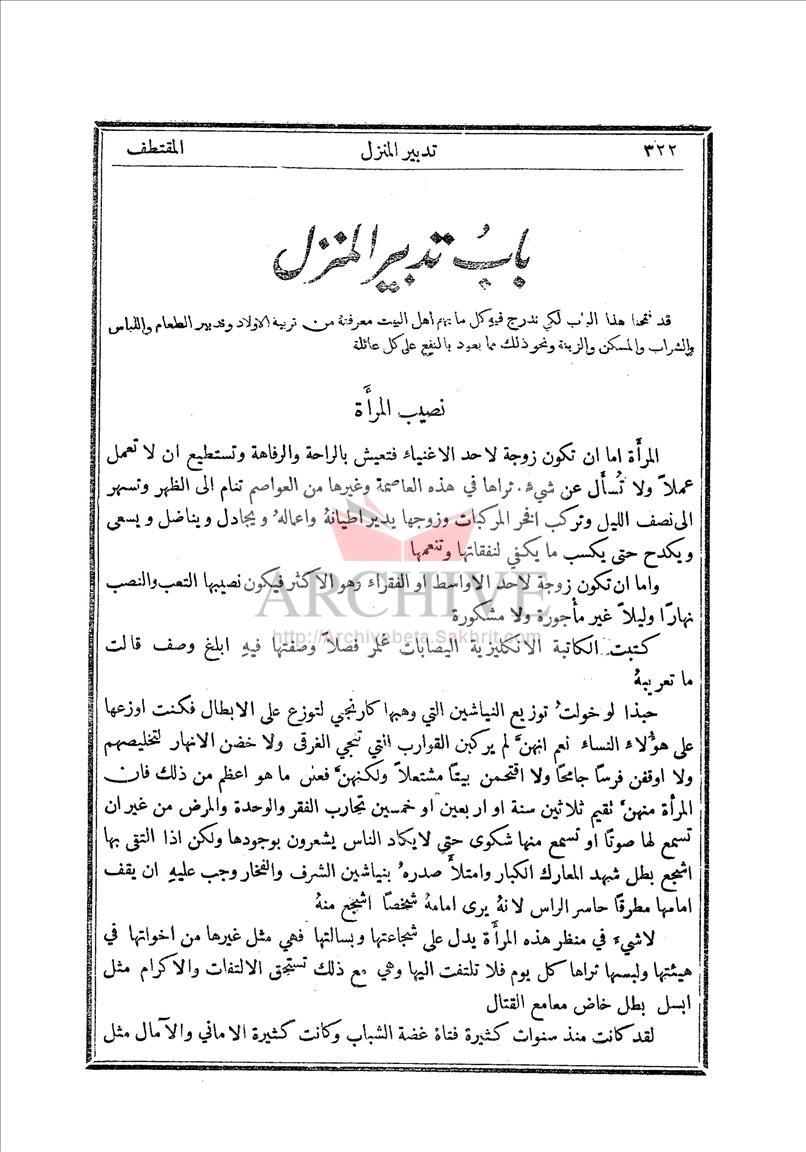 ٣٢٢ تدبير المنزل المقتطف
باب تدبير المنزل
قد فتحنا هذا الباب لكي ندرج فيه كل ما يهم اهل البيت معرفته من تربية الاولاد وتدبير الطعام واللباس
والشراب والمسكن والزينة ونحو ذلك مما يعود بالنفع على كل عائلة
نصيب المرأة
المرأة اما ان تكون زوجة لاحد الاغنياء فتعيش بالراحة والرفاهة وتستطيع ان لا تعمل
عملاً ولا تُسأَل عن شيء. تراها في هذه العاصمة وغيرها من العواصم تنام الى الظهر وتسهر
الى نصف الليل وتركب افخر المركبات وزوجها يدير اطيانهُ واعمالهُ ويجادل ويناضل ويسعى
ويكدح حتى يكسب ما يكفي لنفقاتها وتنعمها
واما ان تكون زوجة لاحد الاواسط او الفقراء وهو الاكثر فيكون نصيبها التعب والنصب
نهارًا وليلاً غير مأجورة ولا مشكورة
ARCHIVE
http://Archivebeta.Sakhrit.com
كتبت الكاتبة الانكليزية اليصابات ملر فصلاً وصفتها فيهِ ابلغ وصف قالت
ما تعريبهُ
حبذا لو خولتُ توزيع النياشين التي وهبها كارنجي لتوزع على الابطال فكنت اوزعها
على هؤلاء النساء نعم انهنَّ لم يركبن القوارب التي تنجي الغرقى ولا خضن الانهار لتخليصهم
ولا اوقفن فرسًا جامحًا ولا اقتحمن بيتًا مشتعلاً ولكنهنَّ فعلن ما هو اعظم من ذلك فان
المرأة منهنَّ تقيم ثلاثين سنة او اربعين او خمسين تجارب الفقر والوحدة والمرض من غير ان
تسمع لها صوتًا او تسمع منها شكوى حتى لا يكاد الناس يشعرون بوجودها ولكن اذا التقى بها
اشجع بطل شهد المعارك الكبار وامتلأ صدرهُ بنياشين الشرف والفخار وجب عليهِ ان يقف
امامها مطرقًا حاسر الراس لانهُ يرى امامهُ شخصًا اشجع منهُ
لا شيء في منظر هذه المرأة يدل على شجاعتها وبسالتها فهي مثل غيرها من اخواتها في
هيئتها ولبسها تراها كل يوم فلا تلتفت اليها وهي مع ذلك تستحق الالتفات والاكرام مثل
ابسل بطل خاض معامع القتال
لقد كانت منذ سنوات كثيرة فتاة غضة الشباب وكانت كثيرة الاماني والآمال مثل